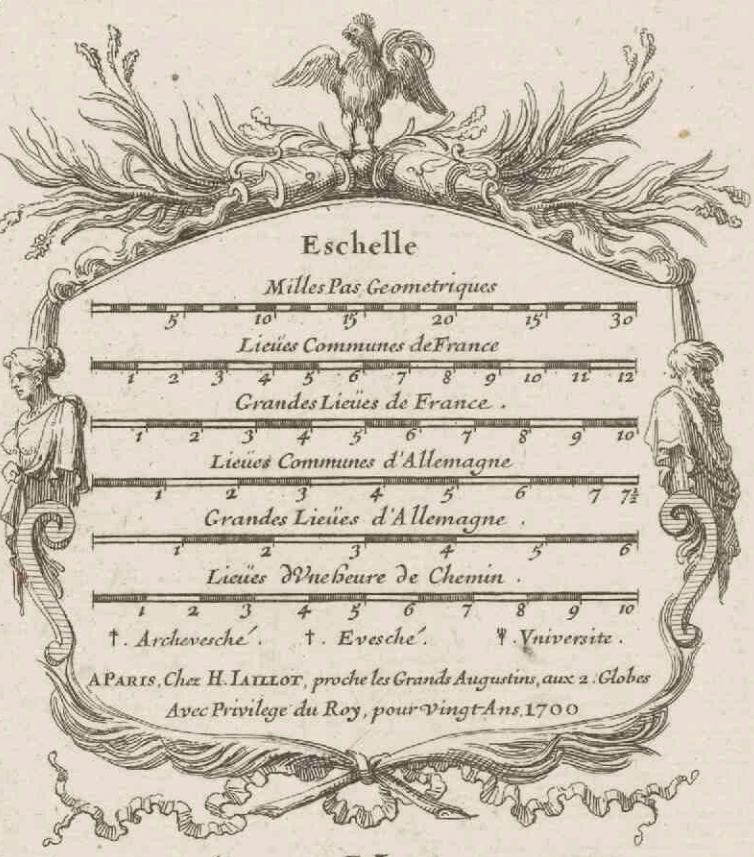 Eschelle
Milles Pas Geometriques
5 10 15 20 15 30
Lieües Communes de France
1 2 3 4 5 6 7 8 9 10 11 12
Grandes Lieües de France .
1 2 3 4 5 6 7 8 9 10
Lieües Communes d'Allemagne
1 2 3 4 5 6 7 7½
Grandes Lieües d'Allemagne .
1 2 3 4 5 6
Lieües d'Vne heure de Chemin .
1 2 3 4 5 6 7 8 9 10
†. Archevesché. †. Evesché. Ỽ. Vniversite.
A PARIS, Chez H. IAILLOT, proche les Grands Augustins, aux 2. Globes
Avec Privilege du Roy, pour vingt Ans. 1700